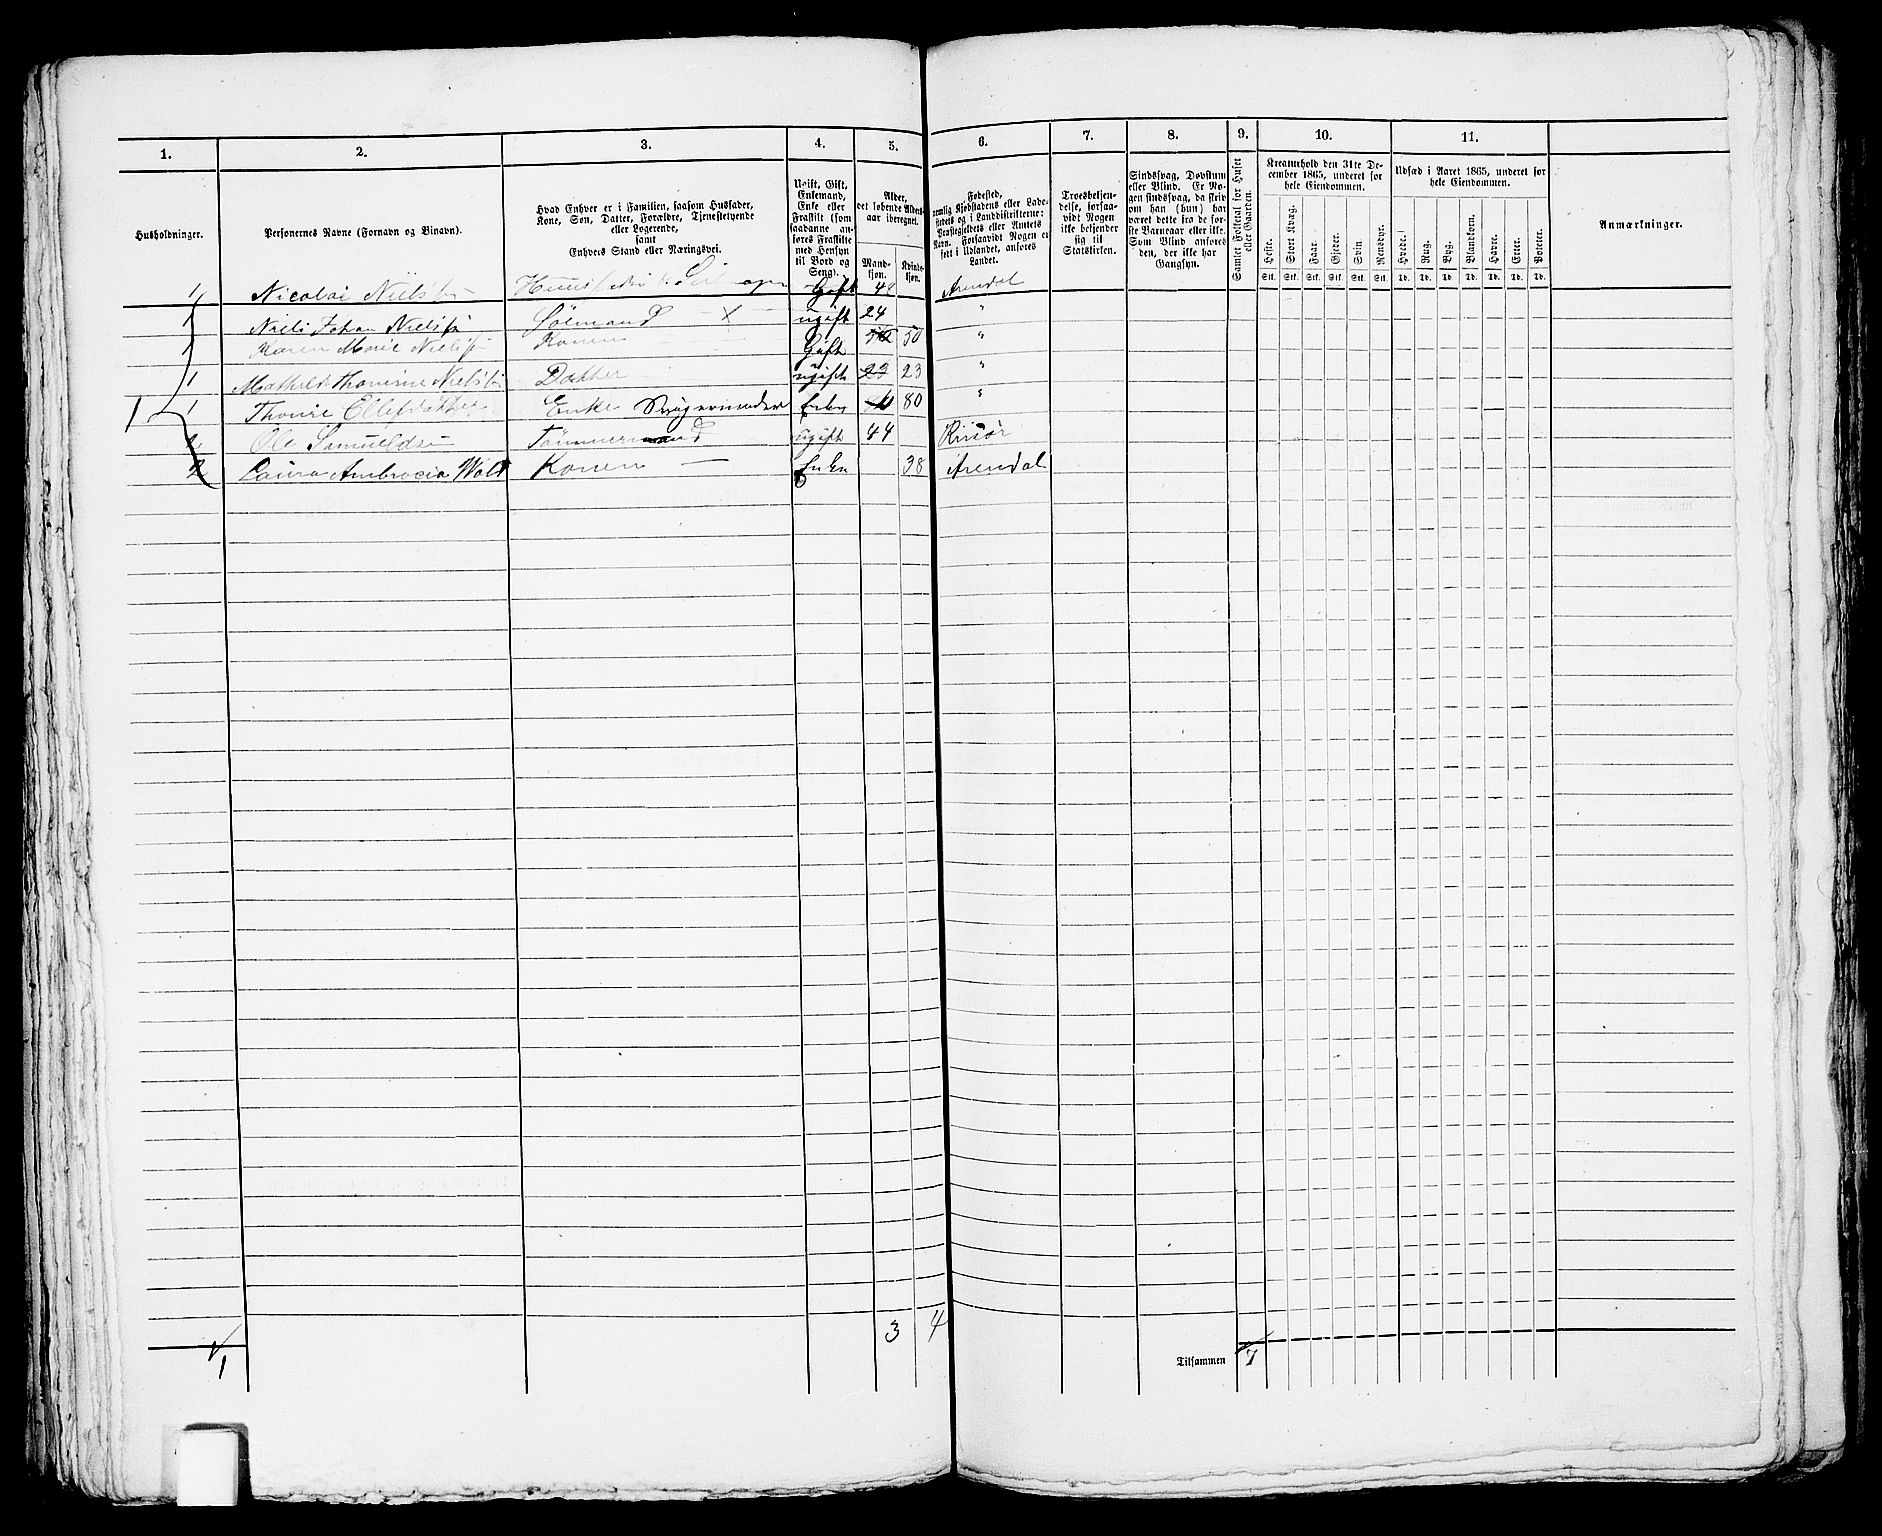 1. 2. 3. 4. 5. 6. 7. 8. 9. 10. 11.
Husholdninger.
Personernes Navne (Fornavn og Binavn).
Hvad Enhver er i Familien, saasom Husfader,
Kone, Søn, Datter, Forældre, Tjenestetyende
eller Logerende,
samt
Enhvers Stand eller Næringsvei.
Ugift, Gift,
Enkemand,
Enke eller
Fraskilt (som
saadanne an-
føres Fraskilte
med Hensyn
til Bord og
Seng).
Alder,
det løbende Alders-
aar iberegnet.
Mand-
kjøn.
Kvinde-
kjøn.
Fødested,
nemlig Kjøbstadens eller Lade-
stedets og i Landdistrikterne:
Præstegjeldets eller Amtets
Navn. Forsaavidt Nogen er
født i Udlandet, anføres
Landet.
Troesbekjen-
delse, forsaa-
vidt Nogen
ikke bekjender
sig til
Statskirken.
Sindssvag, Døvstum
eller Blind. Er No-
gen sindssvag, da skriv
om han (hun) har
været dette fra de før-
ste Barneaar eller ikke.
Som Blind anføres
den, der ikke har
Gangsyn.
Samlet Folketal for Huset
eller Gaarden.
Kreaturhold den 31te De-
cember 1865, underet for
hele Eiendommen.
Heste. Stort Kvæg. Faar. Gjeder. Svin. Rensdyr.
Stk. Stk. Stk. Stk. Stk. Stk.
Udsæd i Aaret 1865, underet for
hele Eiendommen.
Hvede. Rug. Byg. Blandkorn. Havre. Erter. Poteter.
Td. Td. Td. Td. Td. Td. Td.
Anmærkninger.
1 Nicolai Nielsen Gift 48 Arendal
1 Niels Johan Nielsen Sømand X ugift 24 "
1 Karen Marie Nielsen Konen Gift 50 "
1 Mathilde Thomine Nielsen Datter ugift 23 23 "
1 1 Thonie Ellefsdatter Enke Svigermoder Enke 80 "
2 Ole Samuelsen Tømmermand ugift 44 Risør
2 Laura Ambrocia Wold Konen — Enke 38 Arendal
3 4
1 Tilsammen 7